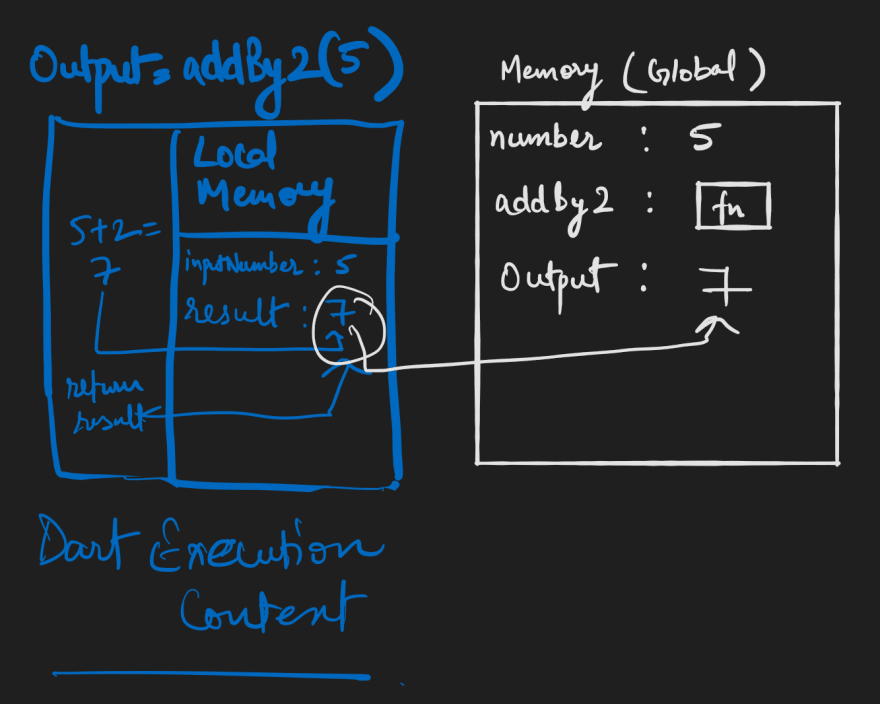 Output = addBy2(5)
Local
Memory
5+2=
7
inputNumber : 5
result : 7
return
result
Dart Execution
Context
Memory (Global)
number : 5
addBy2 : fn
Output : 7